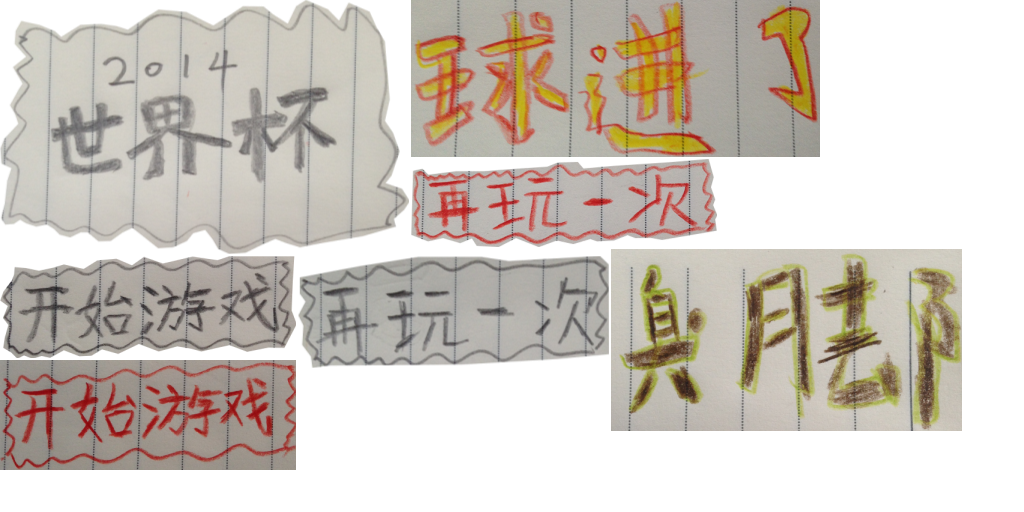 2014
世界杯
球进了
再玩一次
开始游戏
再玩一次
臭脚
开始游戏